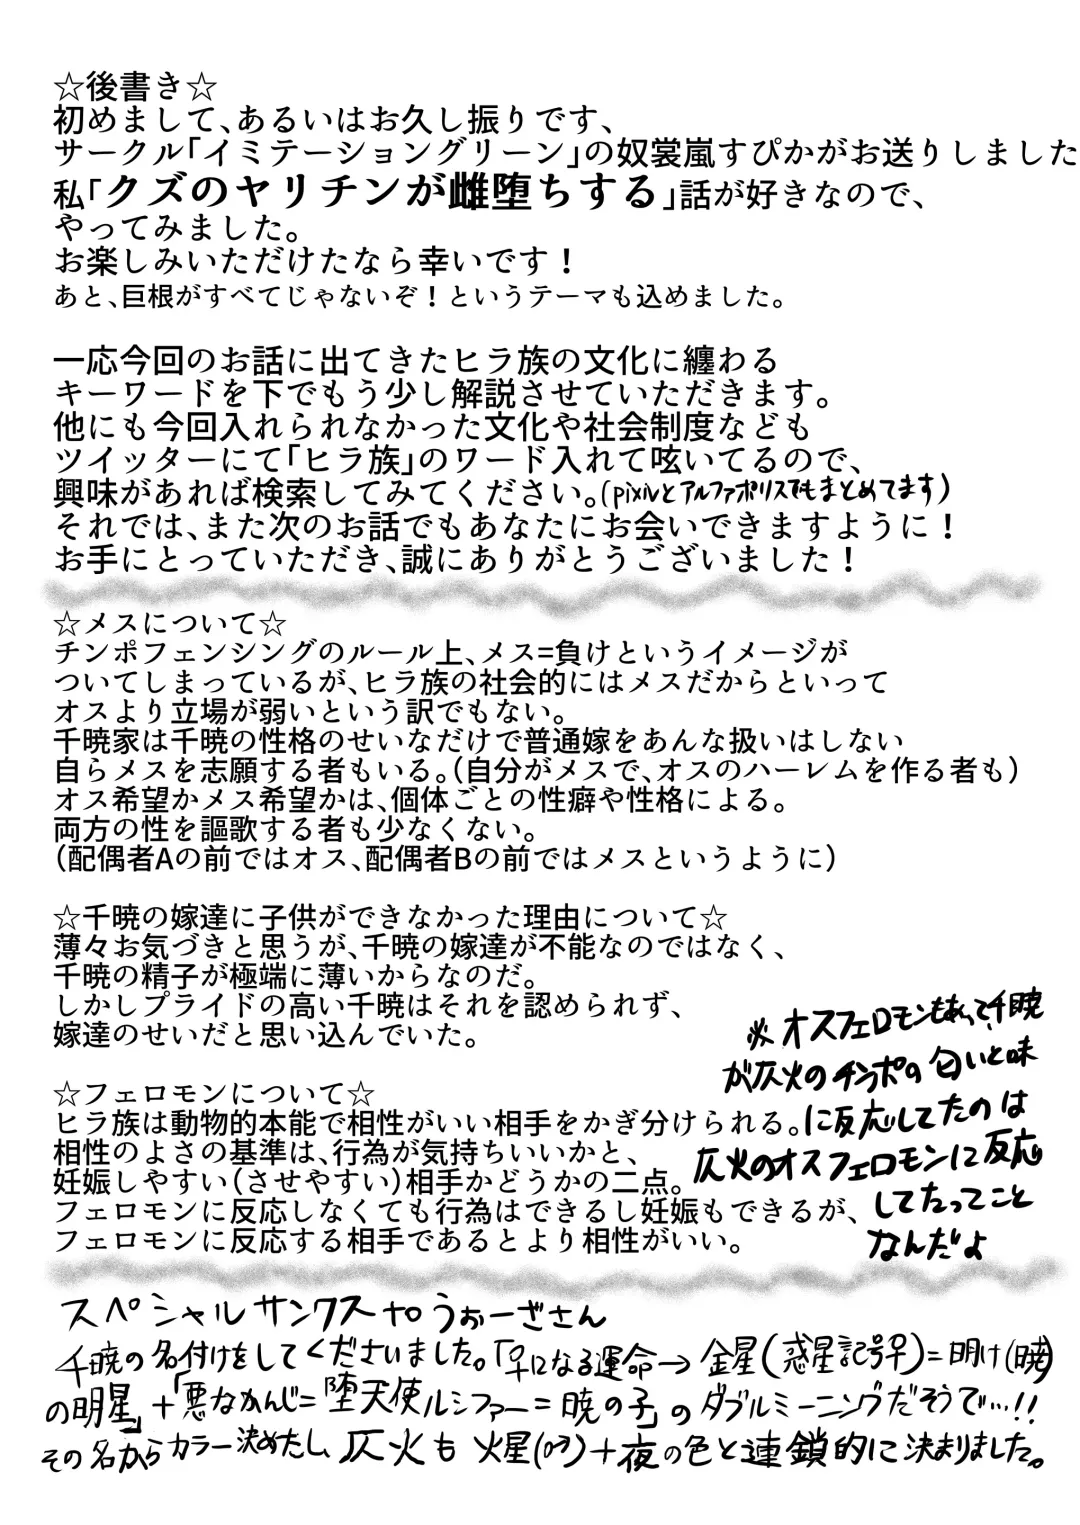 ☆後書き☆
初めまして、あるいはお久し振りです、
サークル「イミテーショングリーン」の奴裳嵐すぴかがお送りしました
私「クズのヤリチンが雌堕ちする」話が好きなので、
やってみました。
お楽しみいただけたなら幸いです！
あと、巨根がすべてじゃないぞ！というテーマも込めました。
一応今回のお話に出てきたヒラ族の文化に纏わる
キーワードを下でもう少し解説させていただきます。
他にも今回入れられなかった文化や社会制度なども
ツイッターにて「ヒラ族」のワード入れて呟いてるので、
興味があれば検索してみてください。(pixivとアルファポリスでもまとめてます)
それでは、また次のお話でもあなたにお会いできますように！
お手にとっていただき、誠にありがとうございました！
☆メスについて☆
チンポフェンシングのルール上、メス=負けというイメージが
ついてしまっているが、ヒラ族の社会的にはメスだからといって
オスより立場が弱いという訳でもない。
千暁家は千暁の性格のせいなだけで普通嫁をあんな扱いはしない
自らメスを志願する者もいる。（自分がメスで、オスのハーレムを作る者も）
オス希望かメス希望かは、個体ごとの性癖や性格による。
両方の性を謳歌する者も少なくない。
（配偶者Aの前ではオス、配偶者Bの前ではメスというように）
☆千暁の嫁達に子供ができなかった理由について☆
薄々お気づきと思うが、千暁の嫁達が不能なのではなく、
千暁の精子が極端に薄いからなのだ。
しかしプライドの高い千暁はそれを認められず、
嫁達のせいだと思い込んでいた。
☆フェロモンについて☆
ヒラ族は動物的本能で相性がいい相手をかぎ分けられる。
相性のよさの基準は、行為が気持ちいいかと、
妊娠しやすい（させやすい）相手かどうかの二点。
フェロモンに反応しなくても行為はできるし妊娠もできるが、
フェロモンに反応する相手であるとより相性がいい。
※オスフェロモンもあって、千暁
が仄火のチンポの匂いと味
に反応してたのは
仄火のオスフェロモンに反応
してたってこと
なんだよ
スペシャルサンクス to うぉーざさん
千暁の名付けをしてくださいました。「♀になる運命→金星(惑星記号♀)=明け(暁)
の明星」+「悪なかんじ=堕天使ルシファー=暁の子」のダブルミーニングだそうで…!!
その名からカラー決めたし、仄火も火星(♂)+夜の色と連鎖的に決まりました。